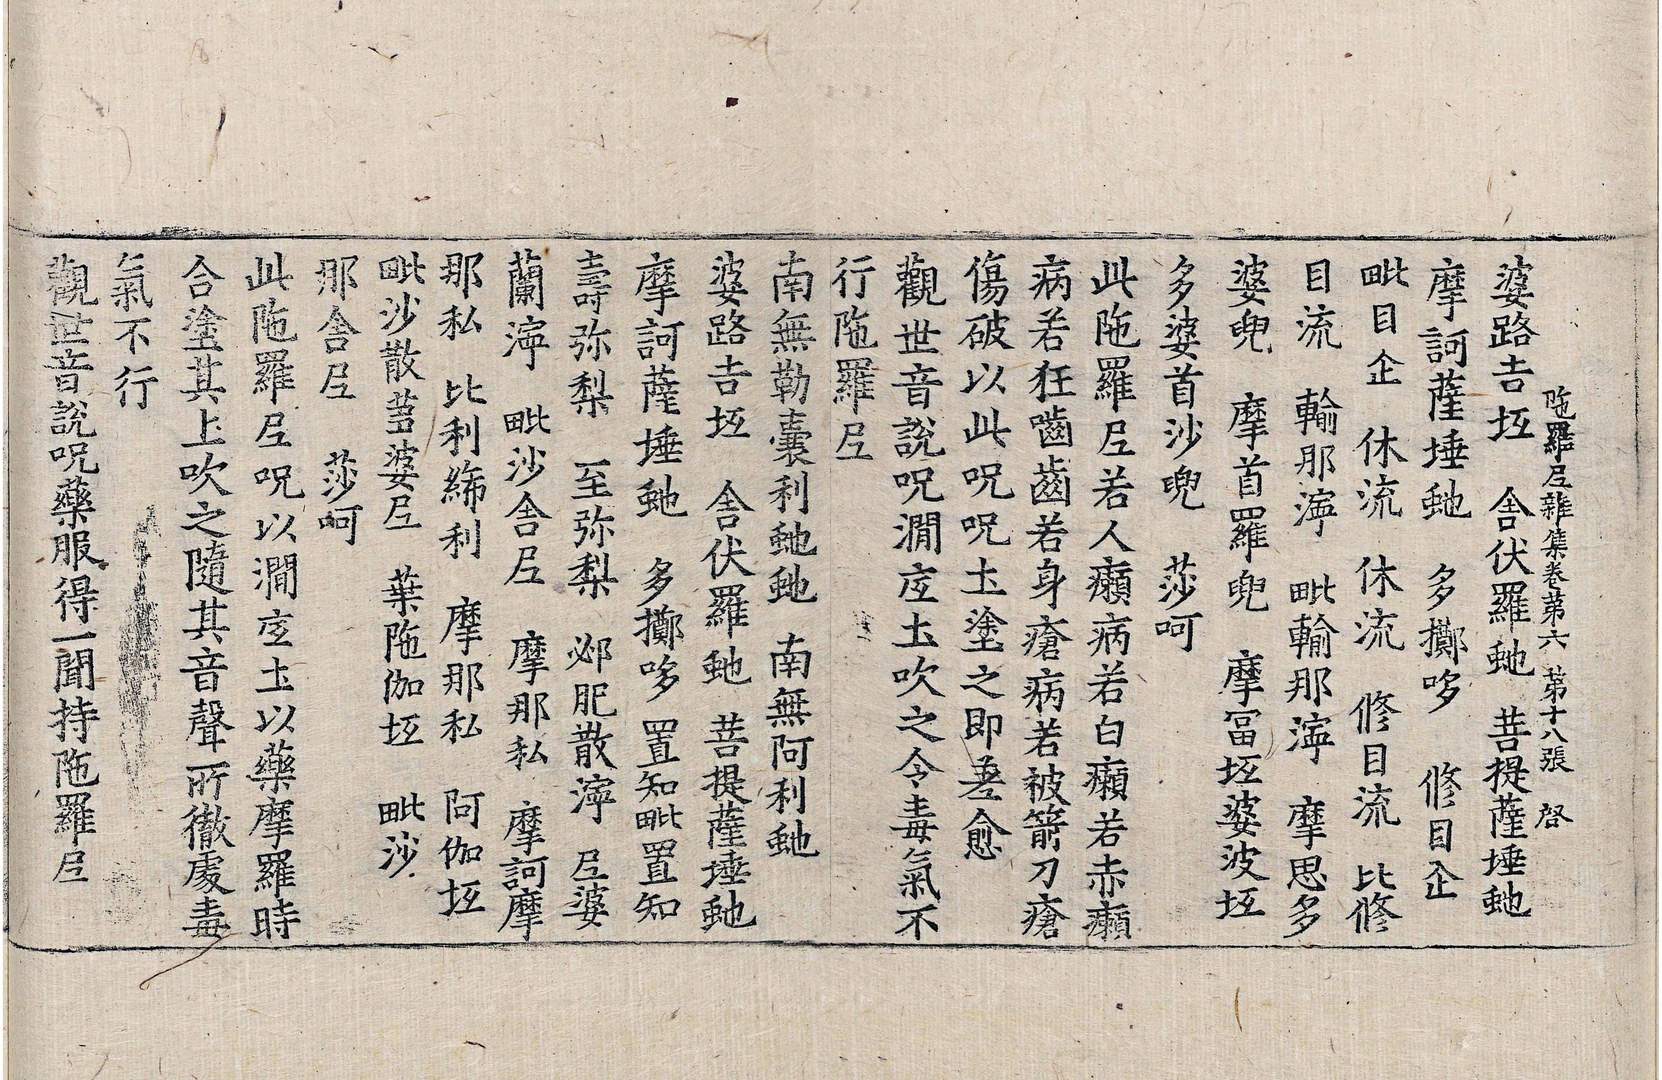 陁羅尼雜集卷第六 第十八張 啓
婆路吉坘 舍伏羅虵 菩提薩埵虵
摩訶薩埵虵 多擲哆 修目企
毗目企 休流 休流 修目流 比修
目流 輸那濘 毗輸那濘 摩思多
婆睨 摩首羅睨 摩冨坘婆波坘
多婆首沙睨 莎呵
此陁羅尼若人癩病若白癩若赤癩
病若狂嚙齒若身瘡病若被箭刀瘡
傷破以此呪呪土塗之即差愈
觀世音說呪澗𡉄土吹之令毒氣不
行陁羅尼
南無勒囊利虵虵 南無阿利虵
婆路吉坘 舍伏羅虵 菩提薩埵虵
摩訶薩埵虵 多擲哆 置知毗置知
壽弥梨 至弥梨 邲肥散濘 尼婆
蘭濘 毗沙舍尼 摩那私 摩訶摩
那私 比利締利 摩那私 阿伽坘
毗沙散䓁婆尼 葉陁伽坘 毗沙
那舍尼 莎呵
此陁羅尼呪以澗𡉄土以藥摩羅時
合塗其上吹之隨其音聲所徹處毒
氣不行
觀世音說呪藥服得一聞持陁羅尼